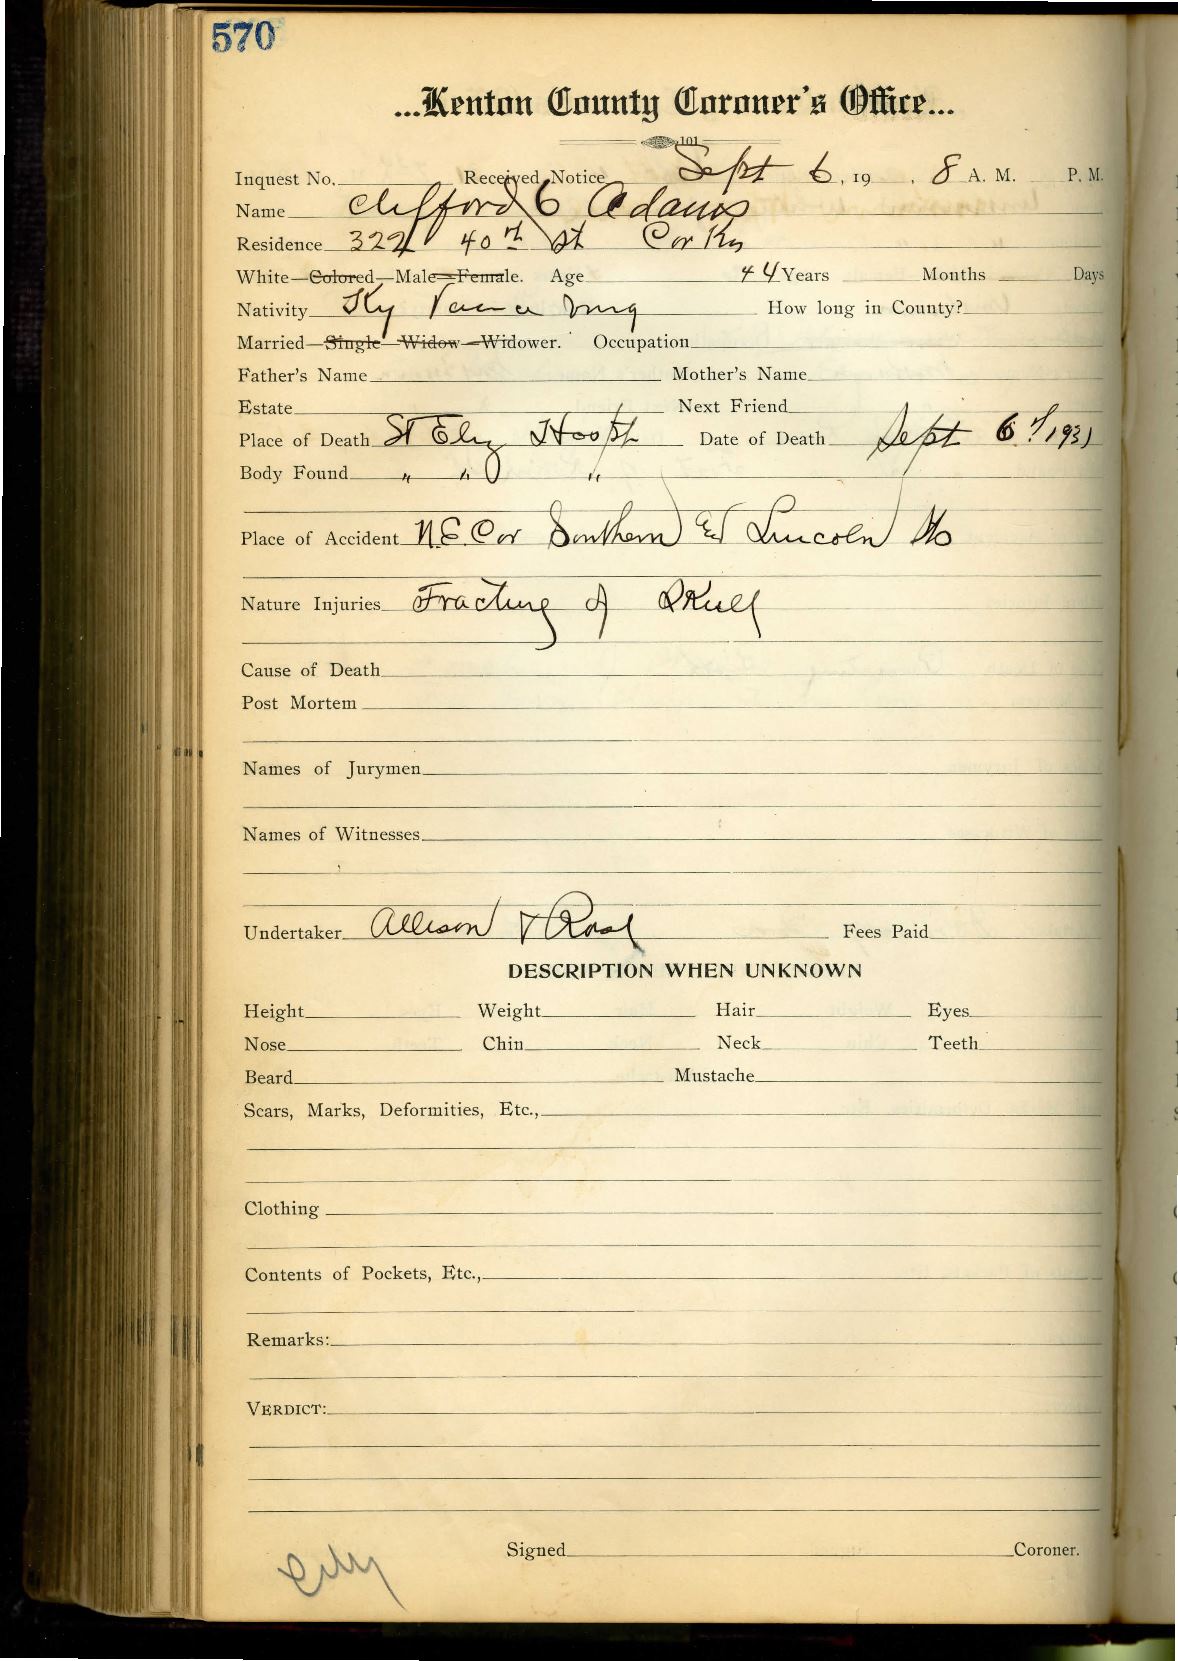 570
...Kenton County Coroner's Office...
101
Inquest No. Received Notice Sept 6, 19 , 8 A. M. P. M.
Name Clifford C Adams
Residence 322 40th St Cov Ky
White—Colored—Male—Female. Age 44 Years Months Days
Nativity Ky How long in County?
Married—Single—Widow—Widower. Occupation
Father's Name Mother's Name
Estate Next Friend
Place of Death St Eliz Hospt Date of Death Sept 6th 1931
Body Found " " "
Place of Accident N.E. Cor Southern & Lincoln
Nature Injuries Fracture of Skull
Cause of Death
Post Mortem
Names of Jurymen
Names of Witnesses
Undertaker Allison & Rose Fees Paid
DESCRIPTION WHEN UNKNOWN
Height Weight Hair Eyes
Nose Chin Neck Teeth
Beard Mustache
Scars, Marks, Deformities, Etc.,
Clothing
Contents of Pockets, Etc.,
Remarks:
VERDICT:
Signed Coroner.